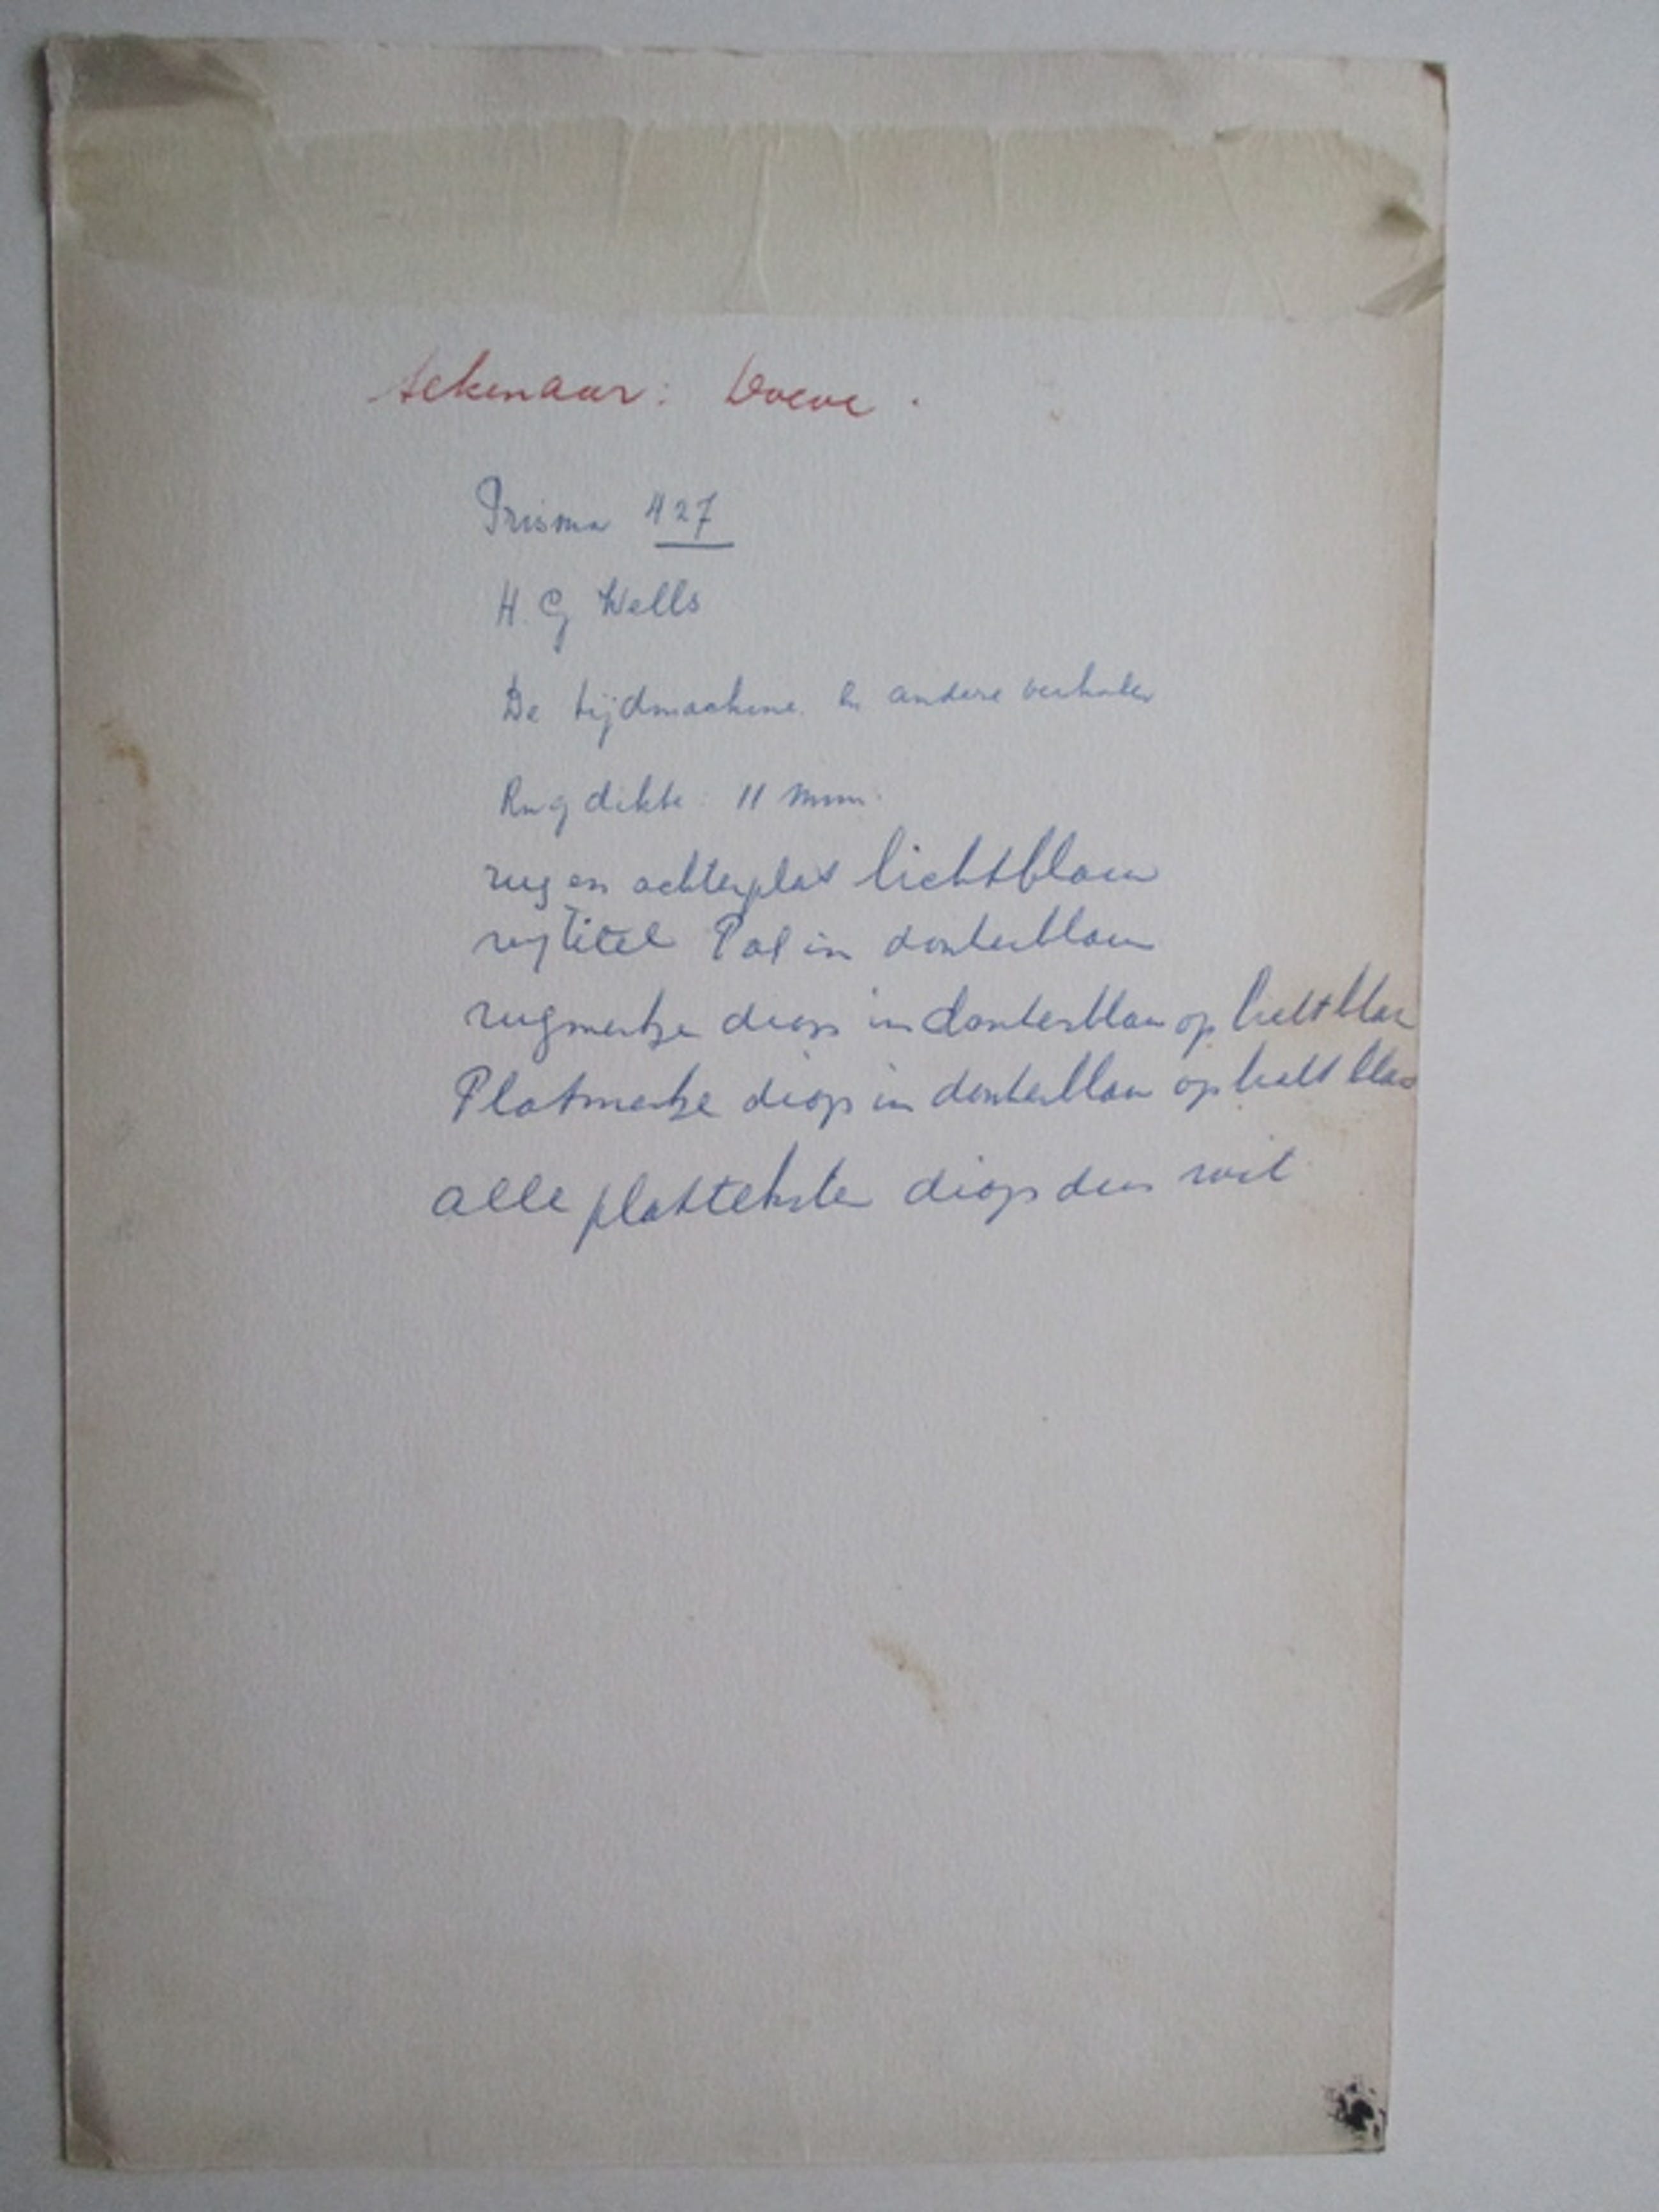 tekenaar: Doeve.
Prisma 427
H.G Wells
De tijdmachine. en andere verhalen
Rugdikte: 11 mm.
rug en achterplat lichtblauw
rugtitel Pal in donkerblauw
rugmerkje diap in donkerblauw op lichtblauw
Platmerkje diap in donkerblauw op lichtblauw
alle platteksten diap dus wit